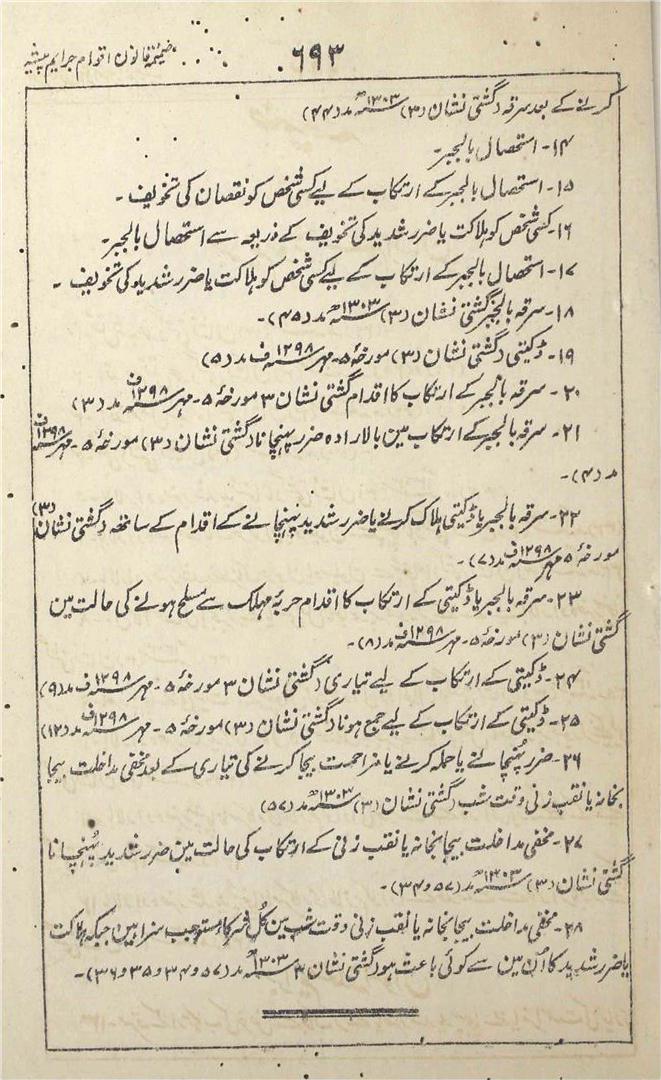 ۶۹۳
ضمیمۂ قانون اقوام جرایم پیشہ
کرنے کے بعد سرقہ دگشتی نشان (۳) ۱۳۰۳ سنہ ھ مد (۴۴)
۱۴- استحصال بالجبر۔
۱۵- استحصال بالجبر کے ارتکاب کے لیے کسی شخص کو نقصان کی تخویف۔
۱۶- کسی شخص کو ہلاکت یا ضرر شدید کی تخویف کے ذریعہ سے استحصال بالجبر۔
۱۷- استحصال بالجبر کے ارتکاب کے لیے کسی شخص کو ہلاکت یا ضرر شدید کی تخویف۔
۱۸- سرقہ بالجبر گشتی نشان (۳) ۱۳۰۳ سنہ ھ مد (۴۵)۔
۱۹- ڈکیتی دگشتی نشان (۳) مورخۂ ۵- مہر ۱۲۹۸ سنہ ف مد (۵)
۲۰- سرقہ بالجبر کے ارتکاب کا اقدام گشتی نشان ۳ مورخۂ ۵- مہر ۱۲۹۸ سنہ ف مد (۳)
۲۱- سرقہ بالجبر کے ارتکاب مین بالارادہ ضرر پہنچانا دگشتی نشان (۳) مورخۂ ۵- مہر ۱۲۹۸ سنہ ف
مد (۴)۔
۲۲- سرقہ بالجبر یا ڈکیتی ہلاک کرنے یا ضرر شدید پہنچانے کے اقدام کے ساتھ دگشتی نشان (۳)
مورخۂ ۵ مہر ۱۲۹۸ سنہ ف مد (۷)۔
۲۳- سرقہ بالجبر یا ڈکیتی کے ارتکاب کا اقدام حربۂ مہلک سے مسلح ہونے کی حالت مین
گشتی نشان (۳) مورخۂ ۵- مہر ۱۲۹۸ سنہ ف مد (۸)۔
۲۴- ڈکیتی کے ارتکاب کے لیے تیاری دگشتی نشان ۳ مورخۂ ۵- مہر ۱۲۹۸ سنہ ف مد (۹)
۲۵- ڈکیتی کے ارتکاب کے لیے جمع ہونا دگشتی نشان (۳) مورخۂ ۵- مہر ۱۲۹۸ سنہ ف مد (۱۲)
۲۶- ضرر پہنچانے یا حملہ کرنے یا مزاحمت بیجا کرنے کی تیاری کے بعد مخفی مداخلت بیجا
بخانہ یا نقب زنی وقت شب دگشتی نشان (۳) ۱۳۰۳ سنہ ھ مد (۵۷)
۲۷- مخفی مداخلت بیجا بخانہ یا نقب زنی کے ارتکاب کی حالت مین ضرر شدید پہنچانا
گشتی نشان (۳) ۱۳۰۳ سنہ ھ مد (۵۷ و ۳۴)۔
۲۸- مخفی مداخلت بیجا بخانہ یا نقب زنی وقت شب مین کل شرکا مستوجب سزا ہین جبکہ ہلاکت
یا ضرر شدید کا اُن مین سے کوئی باعث ہو دگشتی نشان ۳ ۱۳۰۳ سنہ ھ مد (۵۷ و ۳۴ و ۳۵ و ۳۶)۔